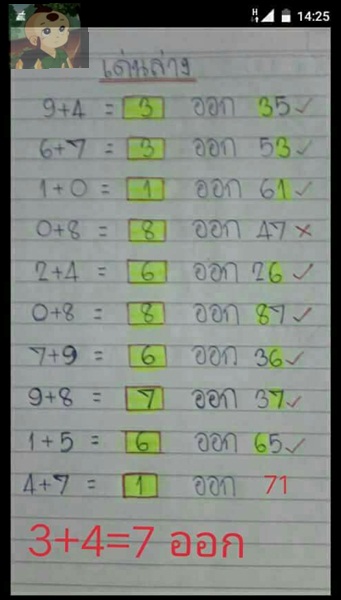 14:25
เด่นล่าง
9+4 = 3 ออก 35 ✓
6+7 = 3 ออก 53 ✓
1+0 = 1 ออก 61 ✓
0+8 = 8 ออก 47 ×
2+4 = 6 ออก 26 ✓
0+8 = 8 ออก 87 ✓
7+9 = 6 ออก 36 ✓
9+8 = 7 ออก 37 ✓
1+5 = 6 ออก 65 ✓
4+7 = 1 ออก 71
3+4=7 ออก